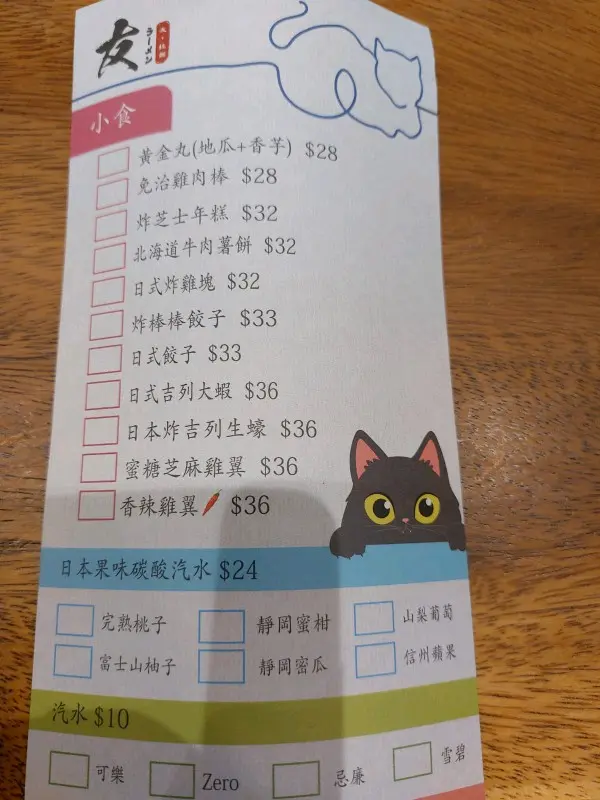 友
ラーメン
小食
黃金丸(地瓜+香芋) $28
免治雞肉棒 $28
炸芝士年糕 $32
北海道牛肉薯餅 $32
日式炸雞塊 $32
炸棒棒餃子 $33
日式餃子 $33
日式吉列大蝦 $36
日本炸吉列生蠔 $36
蜜糖芝麻雞翼 $36
香辣雞翼 $36
日本果味碳酸汽水 $24
完熟桃子 靜岡蜜柑 山梨葡萄
富士山柚子 靜岡密瓜 信州蘋果
汽水 $10
可樂 Zero 忌廉 雪碧